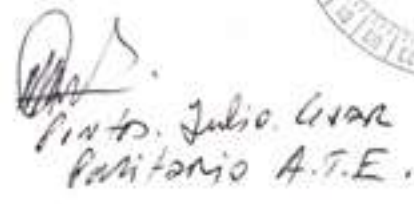 Pintos. Julio. Cesar
Paritario A.T.E.